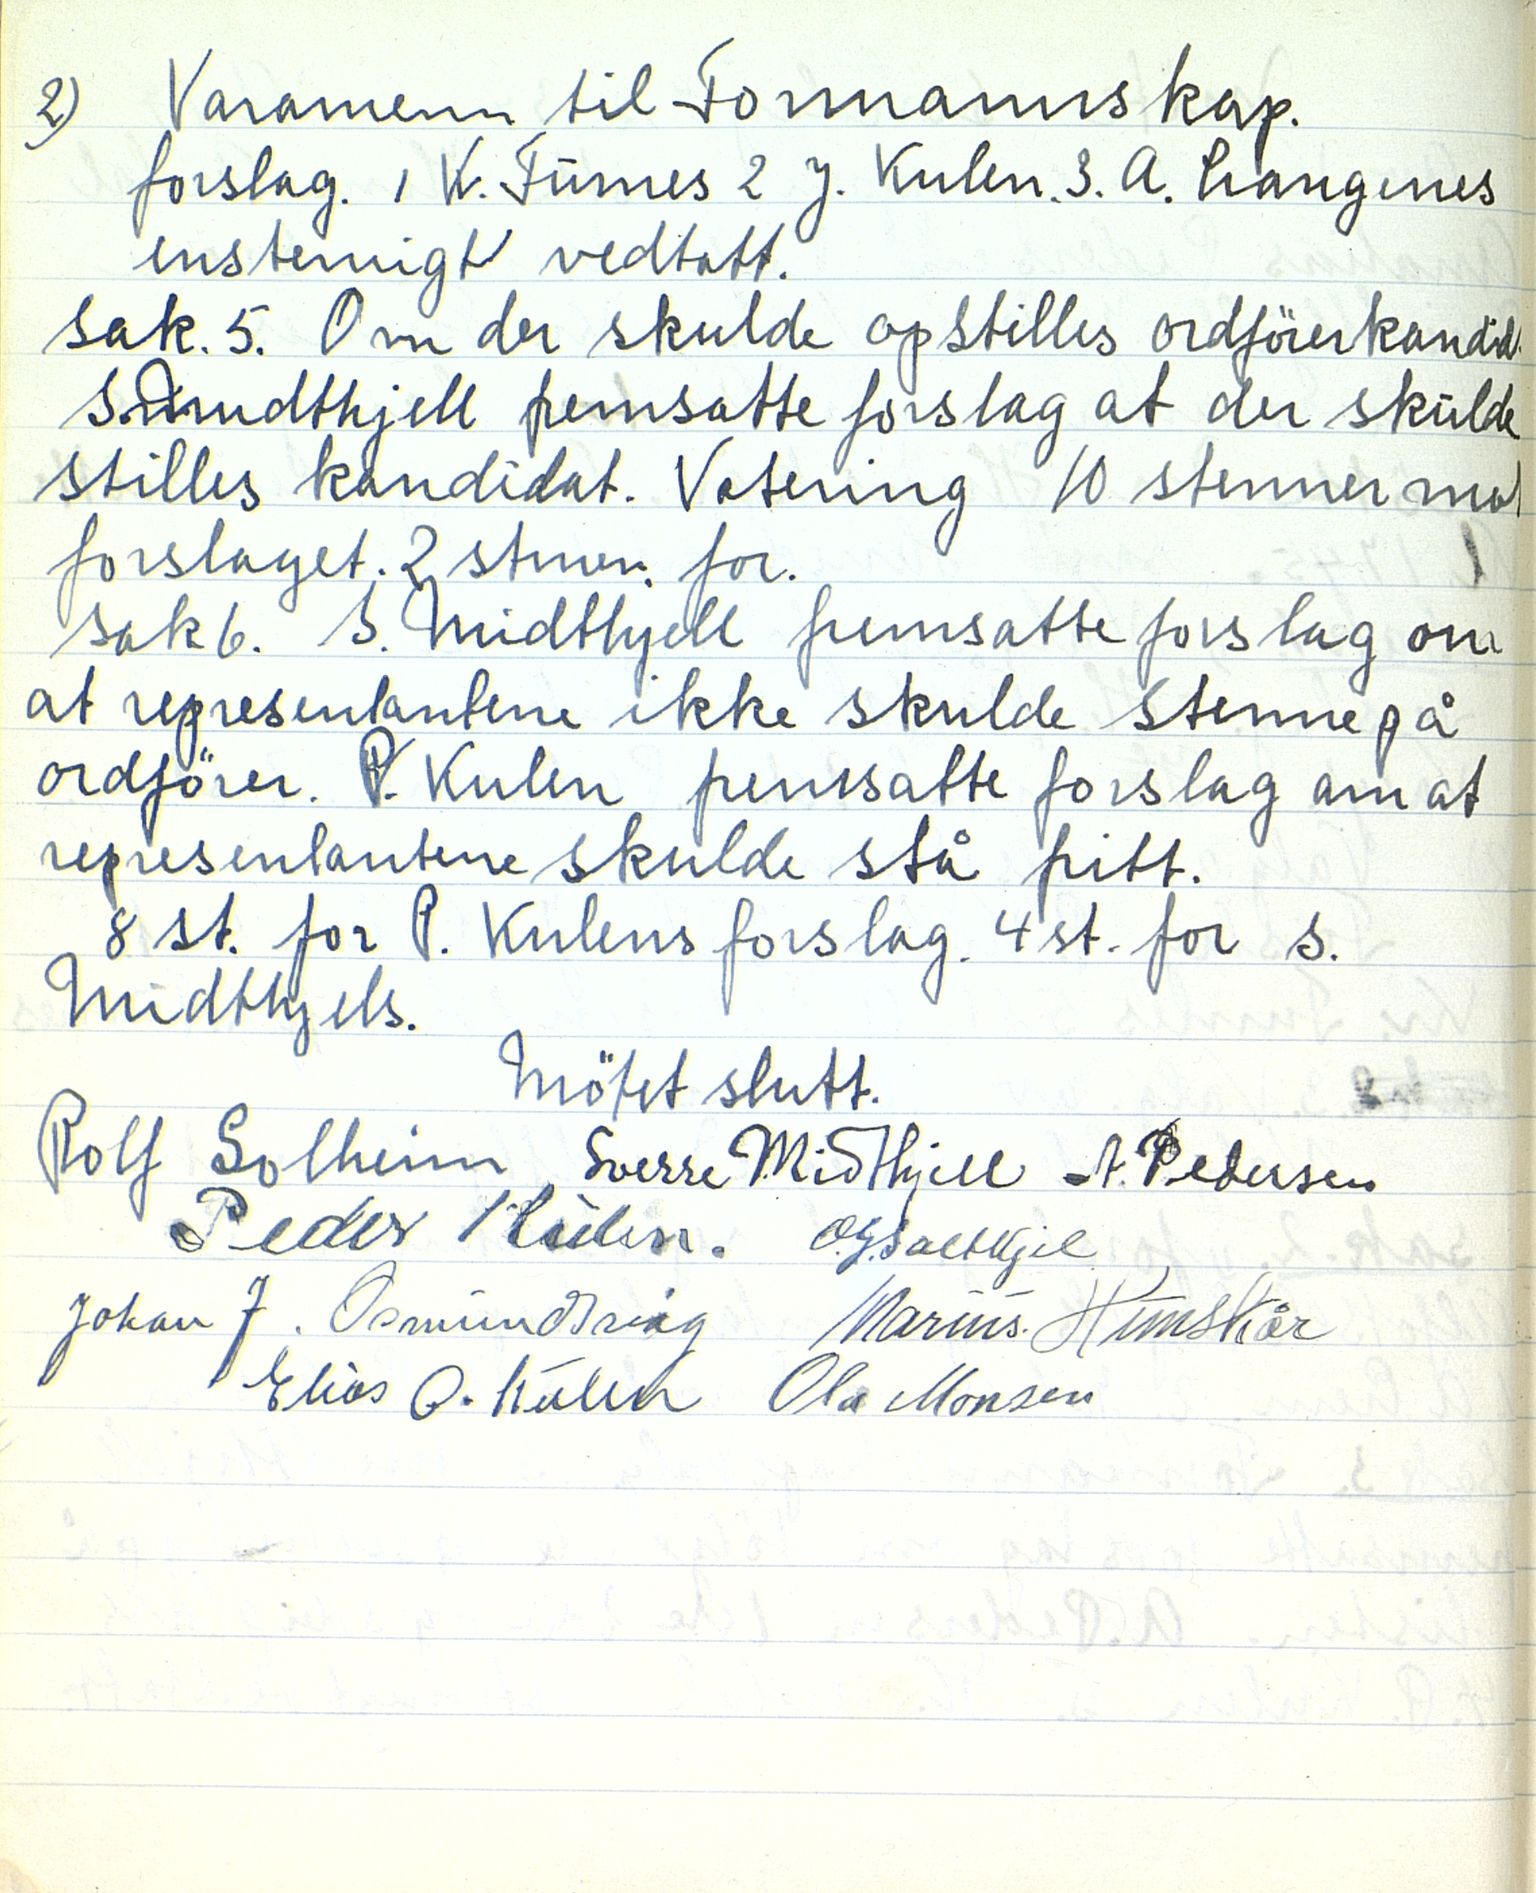 2) Varamenn til Formannskap.
forslag. 1 K. Fürnes 2 J. Kulen. 3. A. Langenes
enstemigt vedtatt.
Sak. 5. Om der skulde opstilles ordförerkandid.
S. Midthjell fremsatte forslag at der skulde
stilles kandidat. Votering 10 stemmer mot
forslaget. 2 stmer. for.
Sak 6. S. Midthjell fremsatte forslag om
at representantene ikke skulde stemme på
ordförer. P. Kulen fremsatte forslag om at
representantene skulde stå fritt.
8 st. for P. Kulens forslag. 4 st. for S.
Midthjels.
Mötet slutt.
Rolf Solheim Sverre Midthjell A. Pedersen
Peder Kulen. O.J. Saltkjel
Johan J. Osmundsvåg Marius. Humskår
Elias O. Kulen Ola Monsen